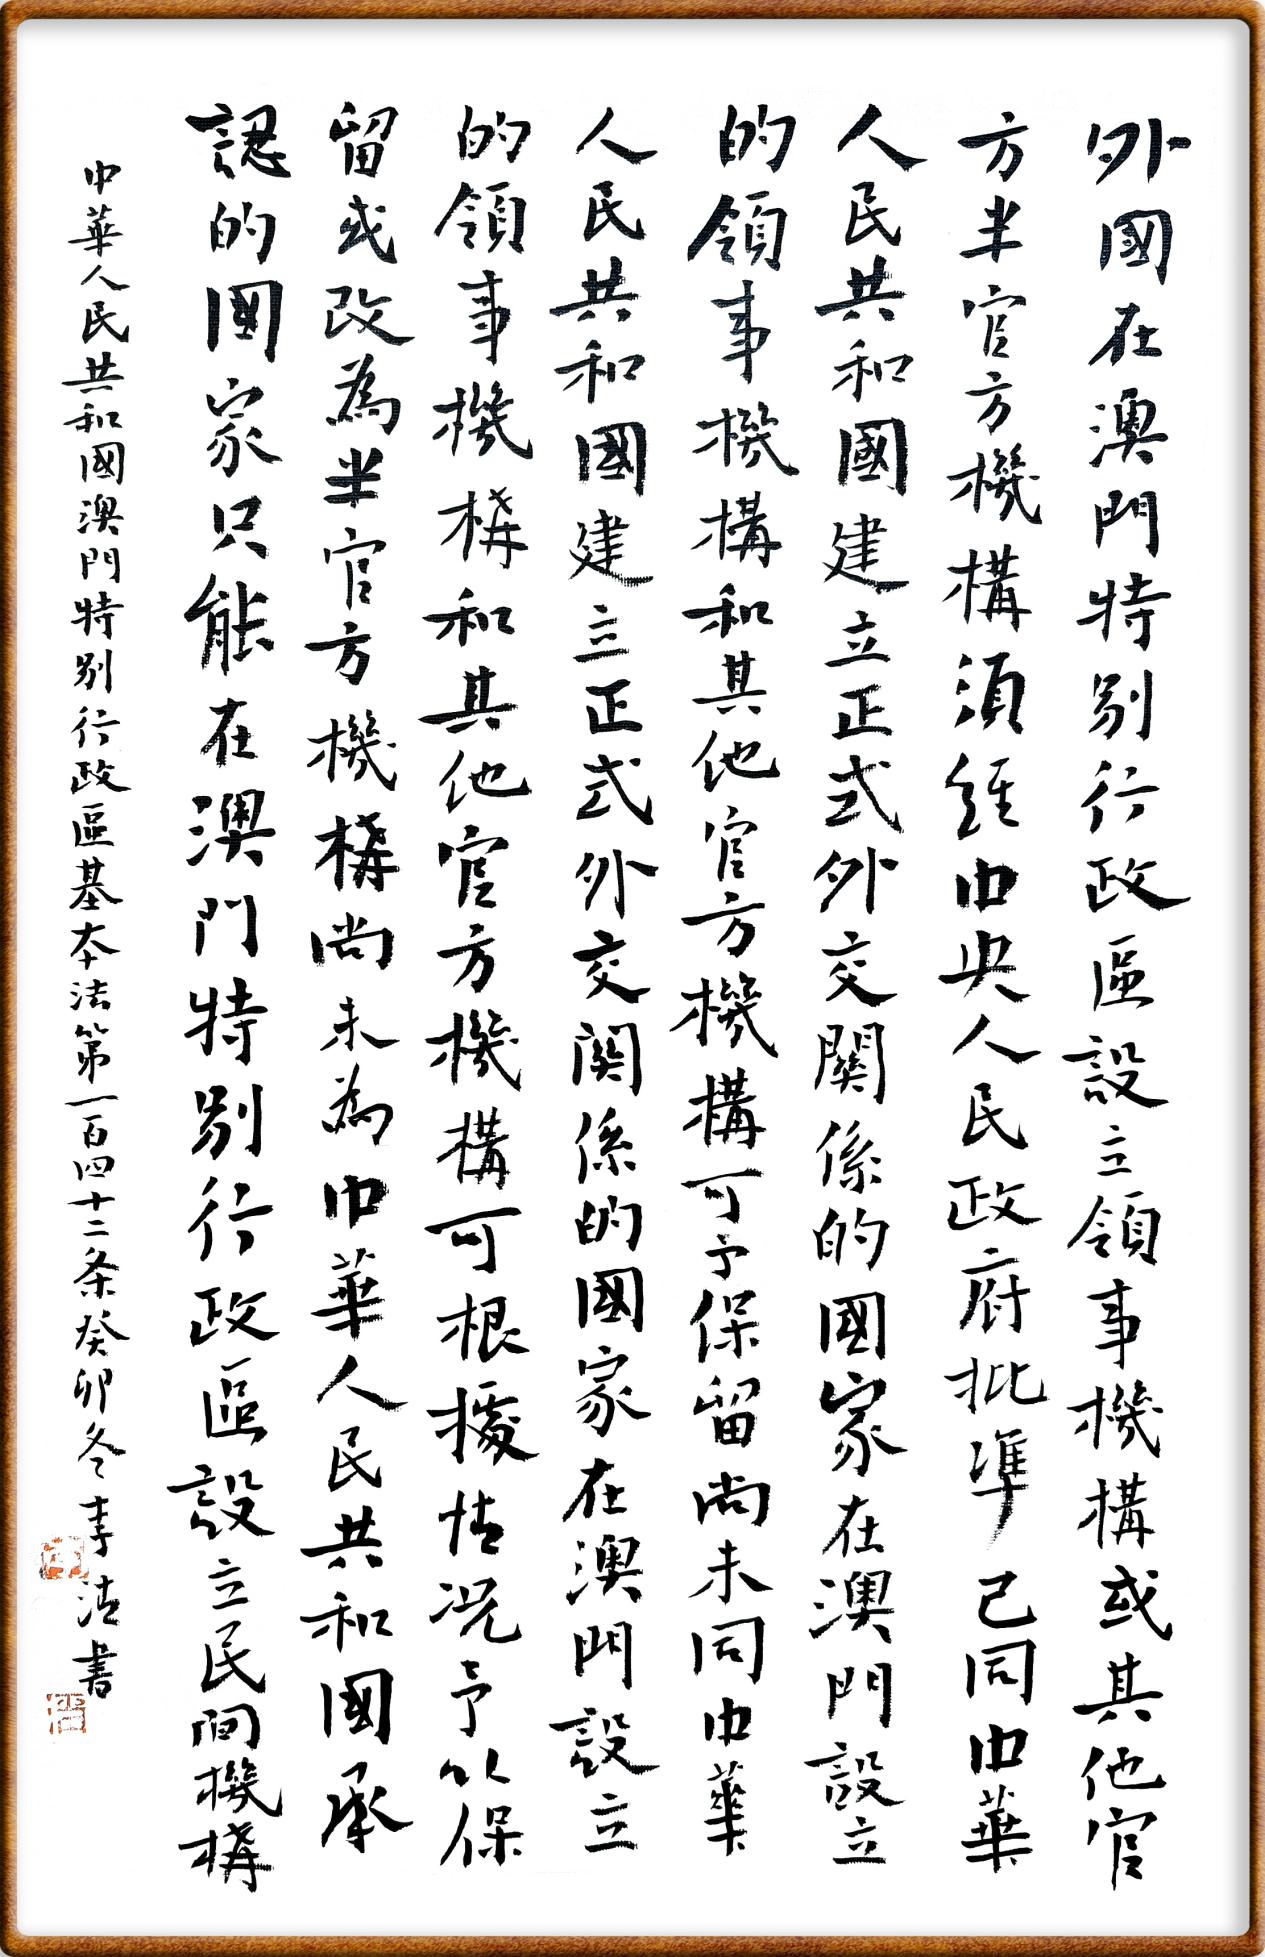 外國在澳門特別行政區設立領事機構或其他官
方半官方機構須經中央人民政府批準已同中華
人民共和國建立正式外交關係的國家在澳門設立
的領事機構和其他官方機構可予保留尚未同中華
人民共和國建立正式外交関係的國家在澳門設立
的領事機構和其他官方機構可根據情况予以保
留或改為半官方機構尚未為中華人民共和國承
認的國家只能在澳門特別行政區設立民間機構
中華人民共和國澳門特別行政區基本法第一百四十二条癸卯冬李清書